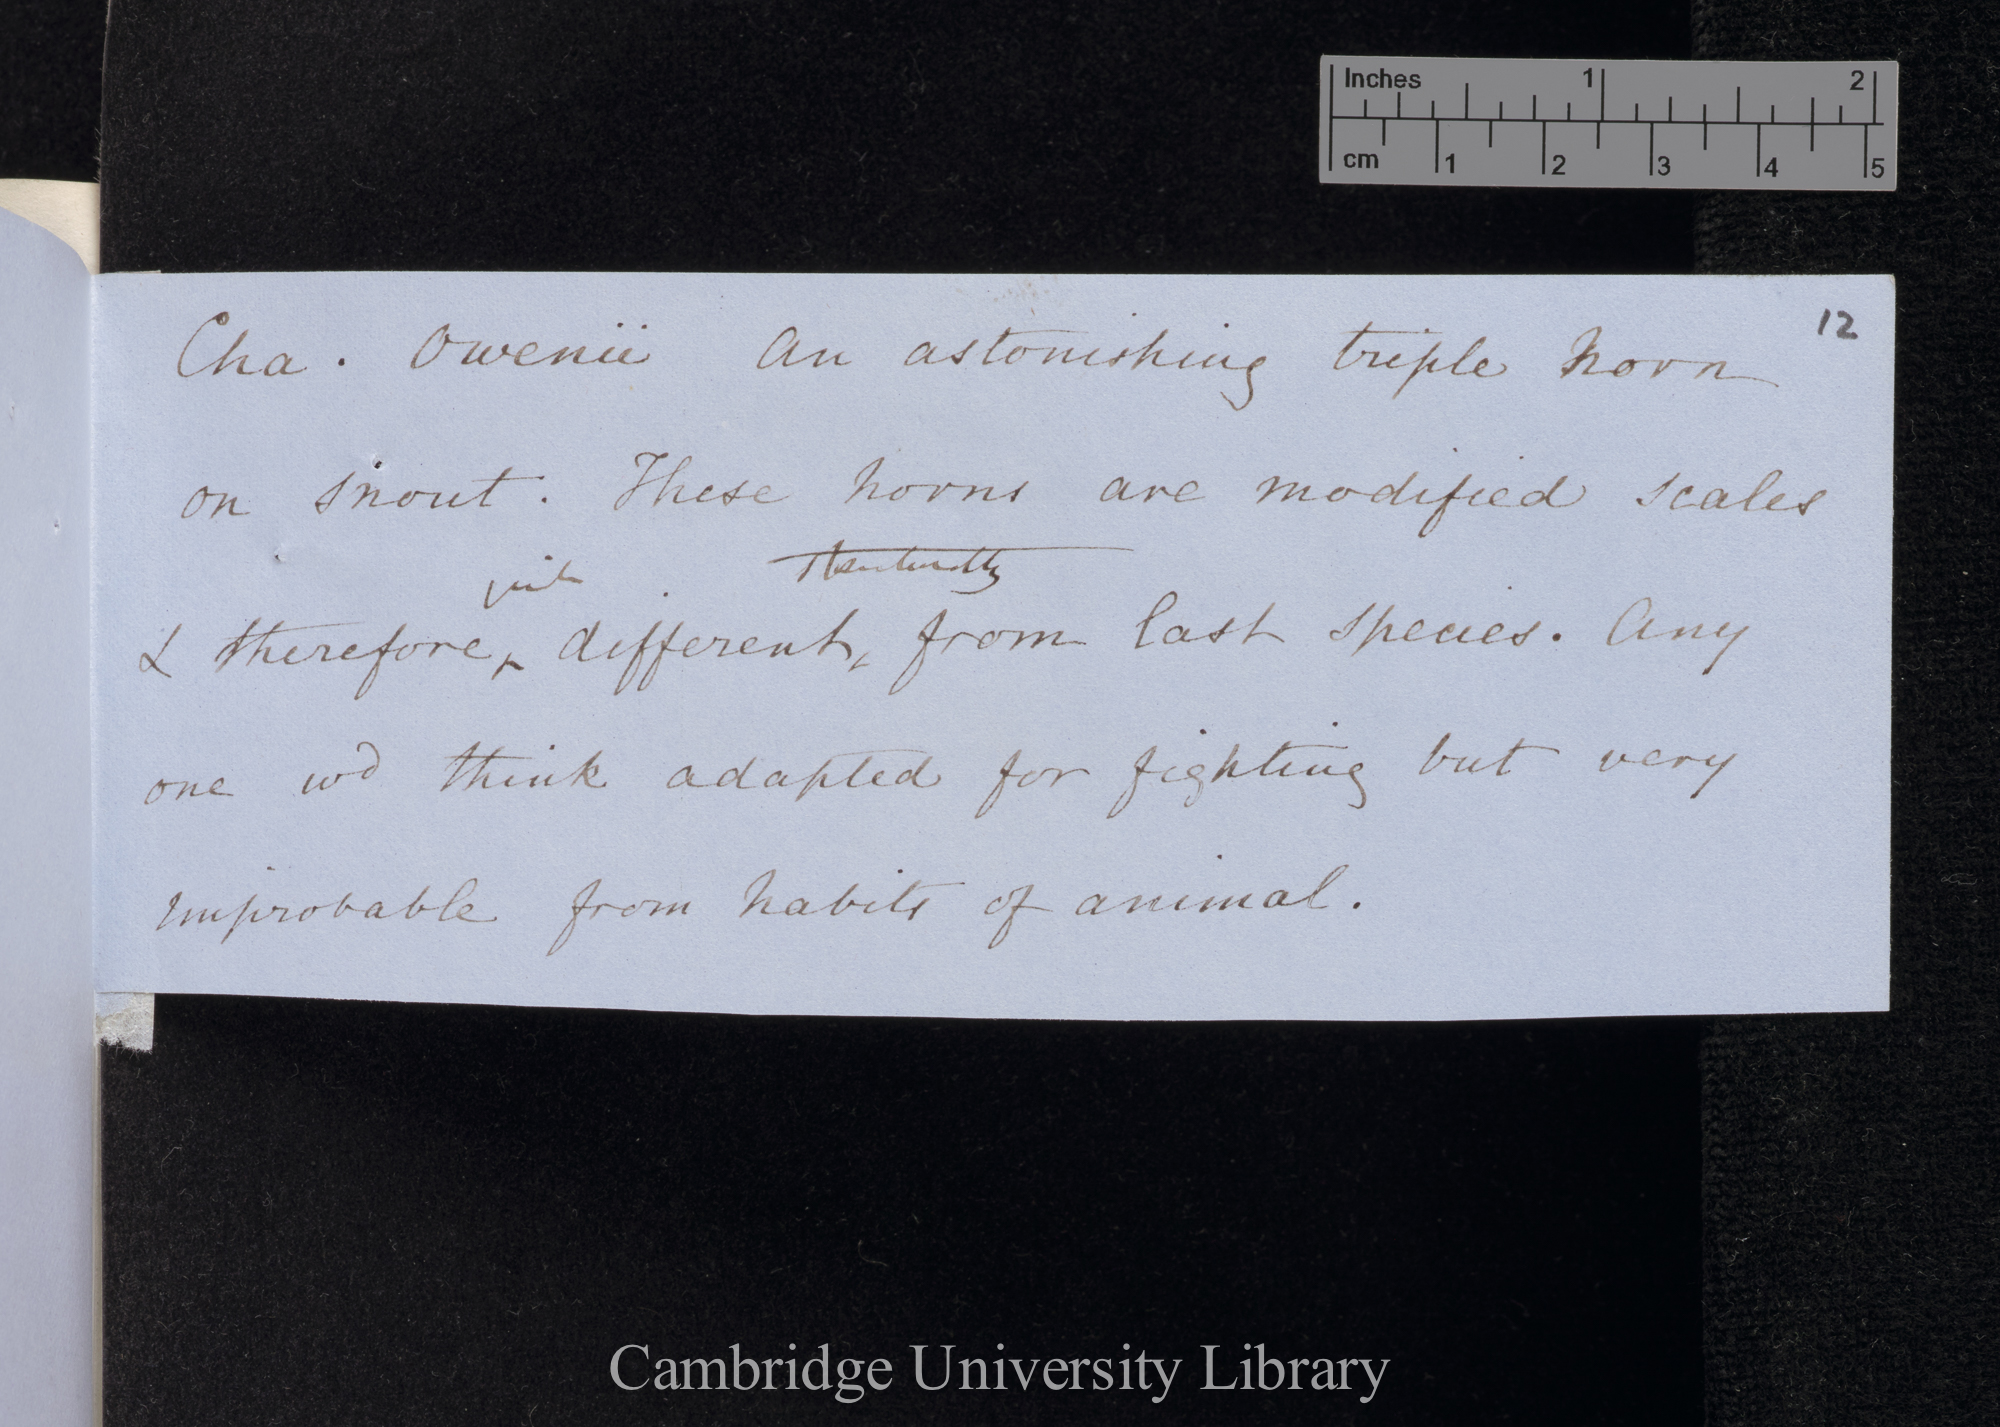 Inches 1 2
cm 1 2 3 4 5
12
Cha. Owenii An astonishing triple horn
on snout. These horns are modified scales
quite
& therefore, different, from last species. Any
one wd think adapted for fighting but very
improbable from habits of animal.
Cambridge University Library